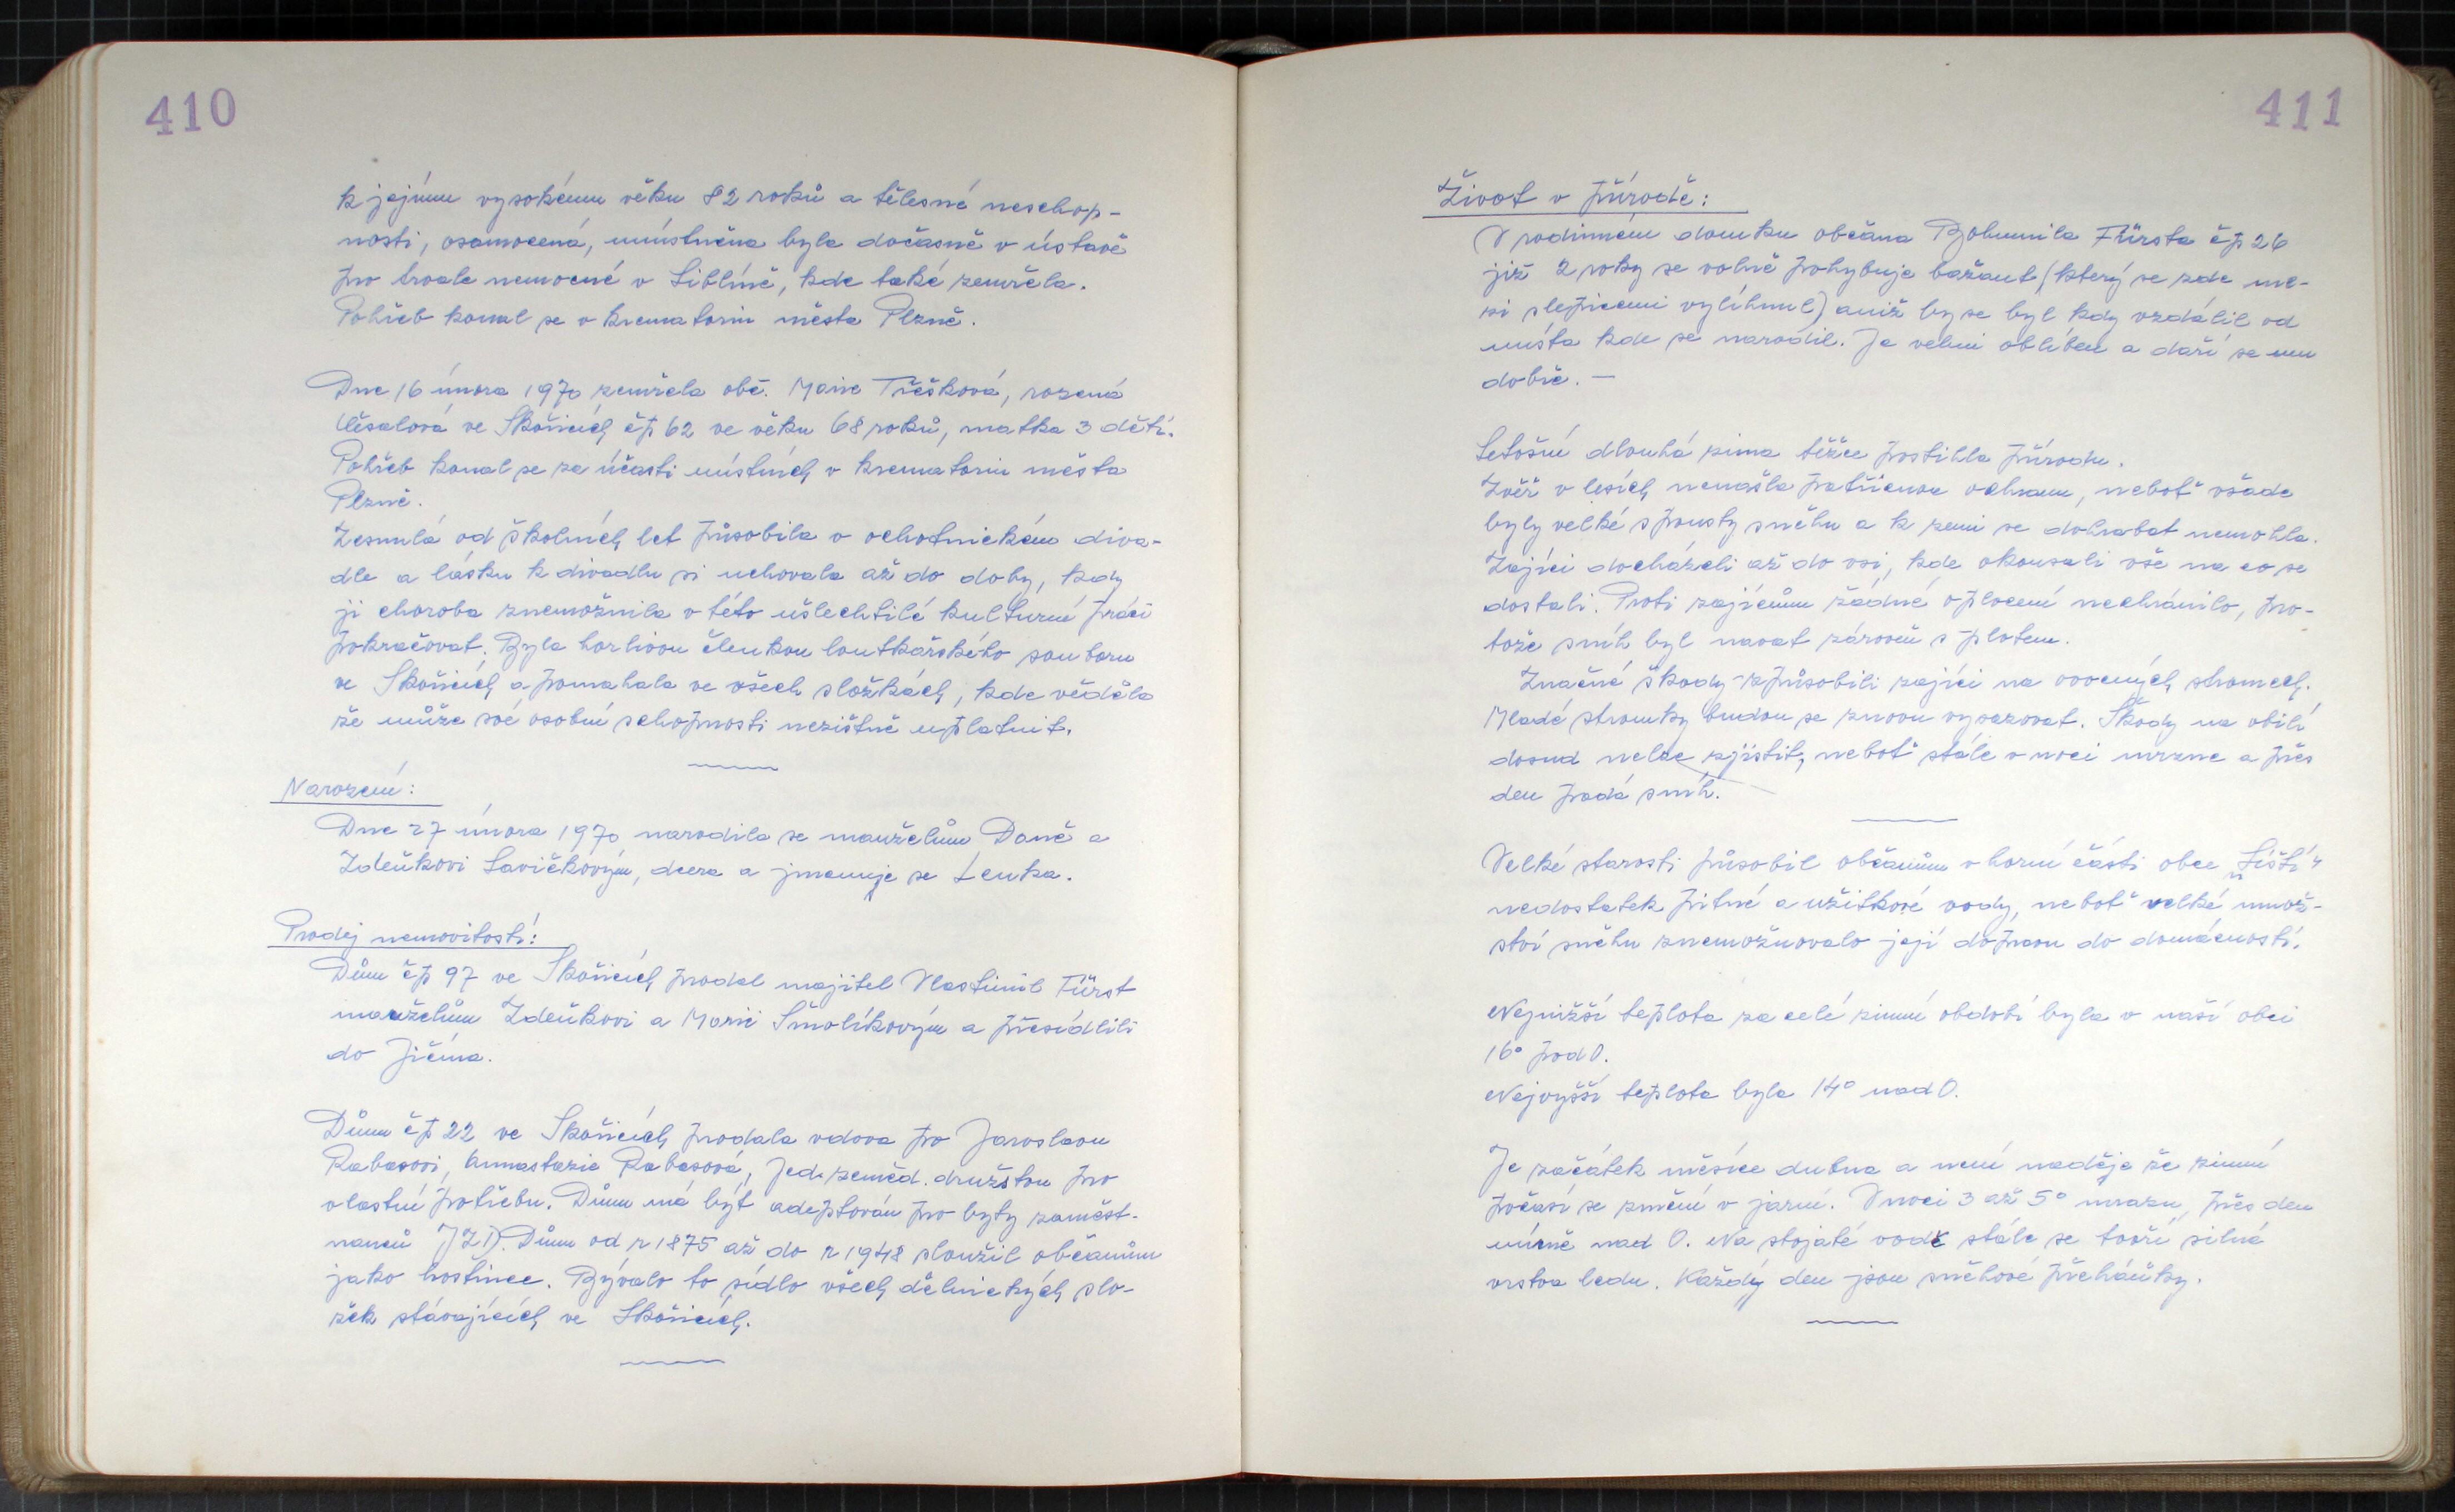 410
k jejímu vysokému věku 82 roků a tělesné neschop-
nosti, osamocená, umístněna byla dočasně v ústavě
pro trvale nemocné v Liblíně, kde také zemřela.
Pohřeb konal se v krematoriu města Plzně.
Dne 16 února 1970 zemřela obč. Marie Třešková, rozená
Včsalová ve Skořicích čp 62 ve věku 68 roků, matka 3 dětí.
Pohřeb konal se za účasti místních v krematoriu města
Plzně.
Zesnulá od školních let působila v ochotnickém diva-
dle a lásku k divadlu si uchovala až do doby, kdy
jí choroba znemožnila v této ušlechtilé kulturní práci
pokračovat. Byla horlivou členkou loutkářského souboru
ve Skořicích a pomahala ve všech složkách, kde věděla
že může své osobní schopnosti nezištně uplatnit.
Narození:
Dne 27 února 1970 narodila se manželům Daně a
Zdeňkovi Lavičkovým, dcera a jmenuje se Lenka.
Prodej nemovitostí:
Dům čp 97 ve Skořicích prodal majitel Vlastimil Fürst
manželům Zdeňkovi a Marii Smolíkovým a přesídlili
do Jičína.
Dům čp 22 ve Skořicích prodala vdova po Jaroslavu
Rabasovi, Annastazie Rabasová, Jed. zeměd. družstvu pro
vlastní potřebu. Dům má být adeptován pro byty zaměst-
nanců JZD. Dům od r 1875 až do r 1948 sloužil občanům
jako hostinec. Bývalo to sídlo všech dělnických slo-
žek stávajících ve Skořicích.
411
Život v přírodě:
V rodinném domku občana Bohumila Fürsta čp 26
již 2 roky se volně pohybuje bažant (který se zde me-
zi slepicemi vylíhnul) aniž by se byl kdy vzdálil od
místa kde se narodil. Je velmi oblíben a daří se mu
dobře. —
Letošní dlouhá zima těžce postihla přírodu.
Zvěř v lesích nenašla patřičnou ochranu, neboť všade
byly velké spousty sněhu a k zemi se dohrabat nemohla.
Zajíci docházeli až do vsi, kde okousali vše na co se
dostali. Proti zajícům žádné oplocení nechránilo, pro-
tože sníh byl navat zároveň s plotem.
Značné škody způsobili zajíci na ovocných stromech.
Mladé stromky budou se znovu vysazovat. Škody na obilí
dosud nelze zjistit, neboť stále v noci mrzne a přes
den padá sníh.
Velké starosti působil občanům v horní části obce „Liští"
nedostatek pitné a užitkové vody, neboť velké množ-
ství sněhu znemožnovalo její dopravu do domácností.
Nejnižší teplota za celé zimní období byla v naší obci
16° pod 0.
Nejvyšší teplota byla 14° nad 0.
Je začátek měsíce dubna a není naděje že zimní
počasí se změní v jarní. V noci 3 až 5° mrazu, přes den
mírně nad 0. Na stojaté vodě stále se tvoří silná
vrstva ledu. Každý den jsou sněhové přeháňky.